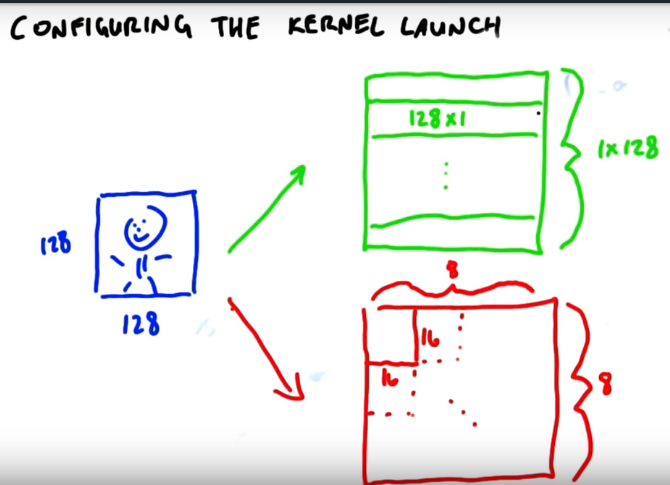 CONFIGURING THE KERNEL LAUNCH
128
128
128x1
1x128
8
16
16
8